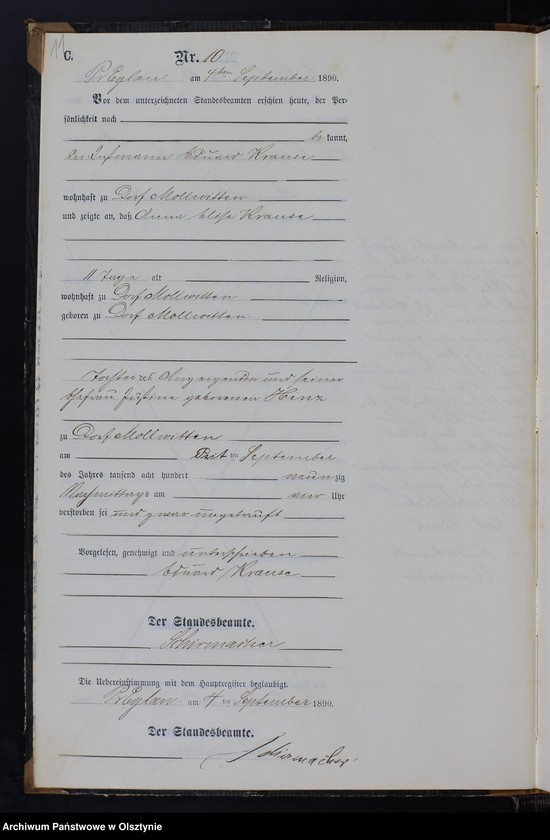 11
C.
Nr. 10
Pr Eylau am 4ten September 1890.
Vor dem unterzeichneten Standesbeamten erschien heute, der Per-
sönlichkeit nach
be kannt,
der Eduard Krause
wohnhaft zu Dorf Mollwitten
und zeigte an, daß Anna Elise Krause
11 Tage alt Religion,
wohnhaft zu Dorf Mollwitten
geboren zu Dorf Mollwitten
Tochter des Anzeigenden und seiner
Ehefrau Justine geborenen Henz
zu Dorf Mollwitten
am ten September
des Jahres tausend acht hundert neunzig
Nachmittags um vier Uhr
verstorben sei und zwar ungetauft
Vorgelesen, genehmigt und unterschrieben
Eduard Krause
Der Standesbeamte.
Schirmacher
Die Uebereinstimmung mit dem Hauptregister beglaubigt.
Pr Eylau am 4 ten September 1890.
Der Standesbeamte.
Schirmacher
Archiwum Państwowe w Olsztynie